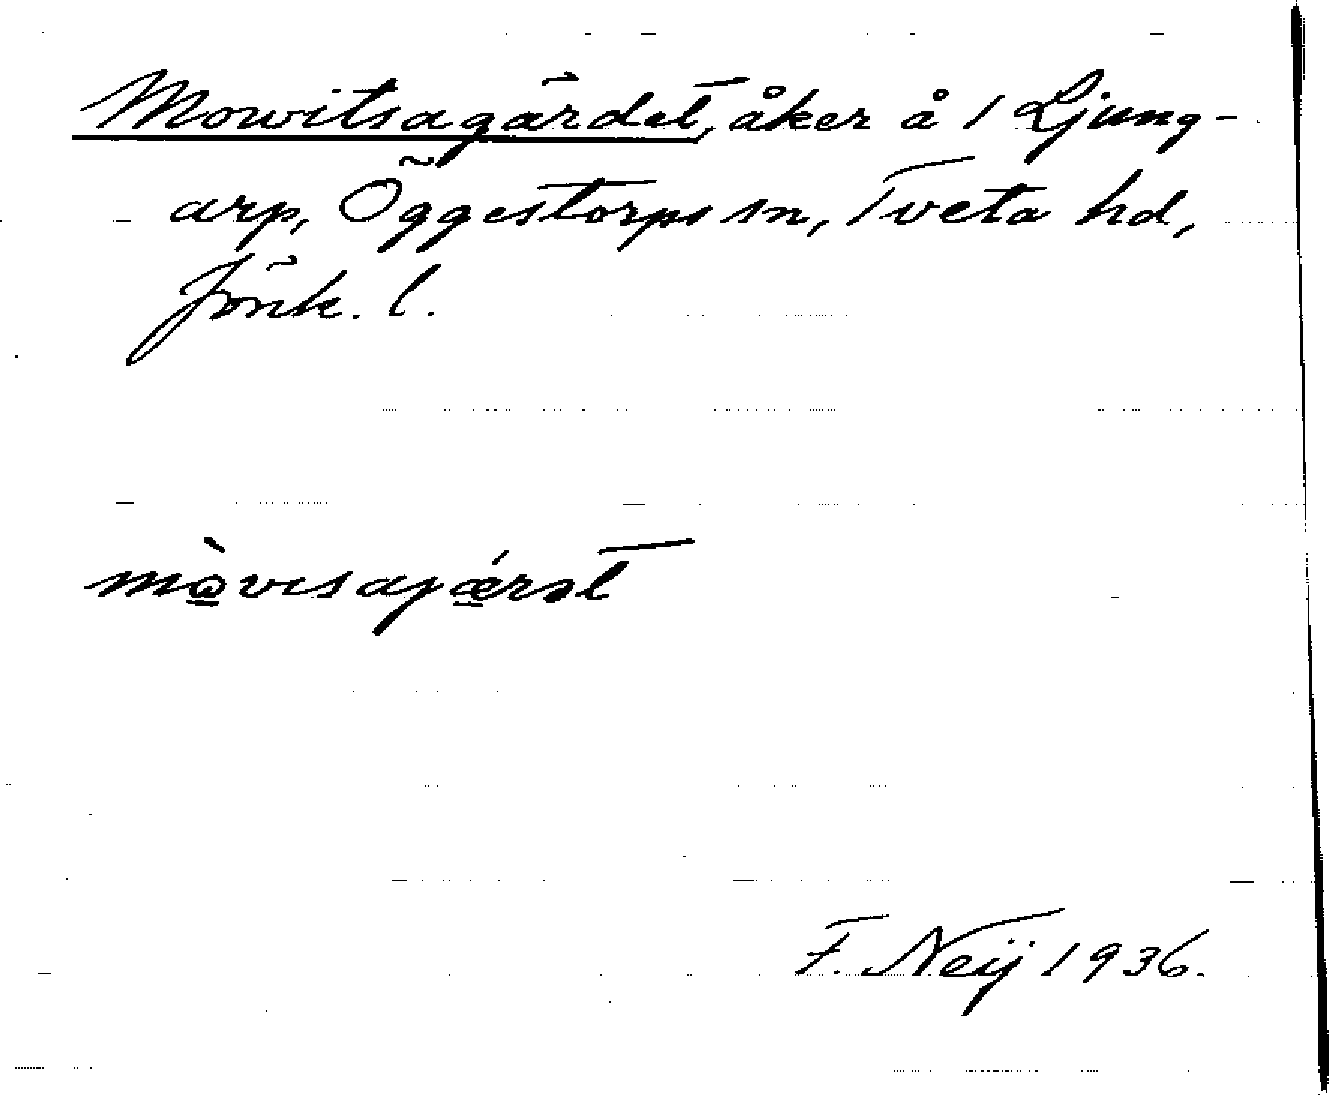 Mowitsagärdet, åker å 1 Ljung-
arp, Öggestorps sn, Tveta hd,
Jönk. l.
mòvisajǽrət
F. Neij 1936.